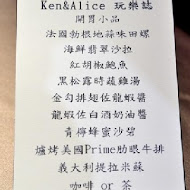 Ken&Alice 玩樂誌
開胃小品
法國勃根地蒜味田螺
海鮮翡翠沙拉
紅胡椒鮑魚
黑松露時蔬雞湯
金勾排翅佐龍蝦醬
龍蝦佐白酒奶油醬
青檸蜂蜜沙碧
爐烤美國Prime肋眼牛排
義大利提拉米蘇
咖啡 or 茶